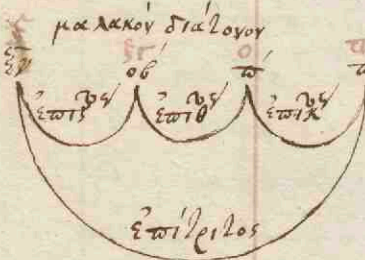 μαλακόν διάτονον
ξγ ο
ξγ οβ́ π́
ἐπιζ ἐπιθ ἐπικ
ἐπίτριτος